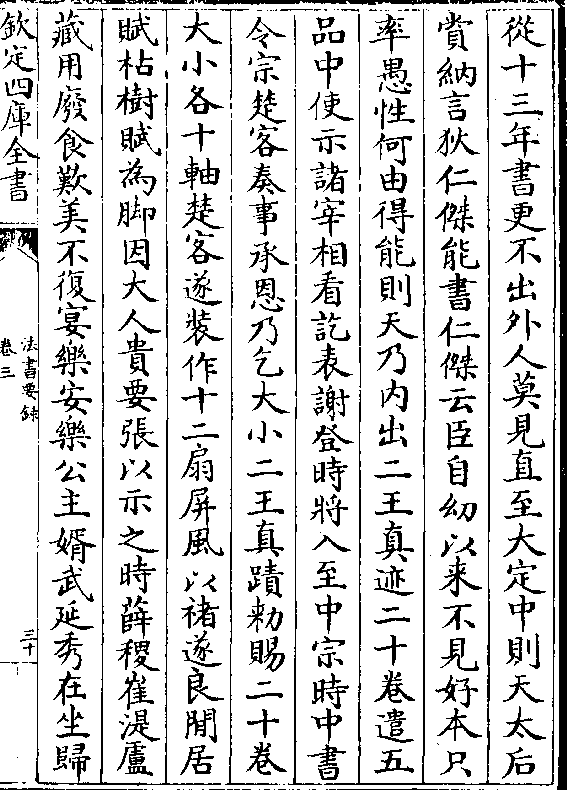 從十三年書更不出外人莫見直至大定中則天太后
賞納言狄仁傑能書仁傑云臣自幼以来不見好本只
率愚性何由得能則天乃内出二王真迹二十卷遣五
品中使示諸宰相看訖表謝登時將入至中宗時中書
令宗楚客奏事承恩乃乞大小二王真蹟勑賜二十卷
大小各十軸楚客遂装作十二扇屏風以褚遂良閒居
賦枯樹賦為脚因大人貴要張以示之時薛稷崔湜盧
藏用廢食歎美不復宴樂安樂公主婿武延秀在坐歸
欽定四庫全書
法書要録
卷三
三十